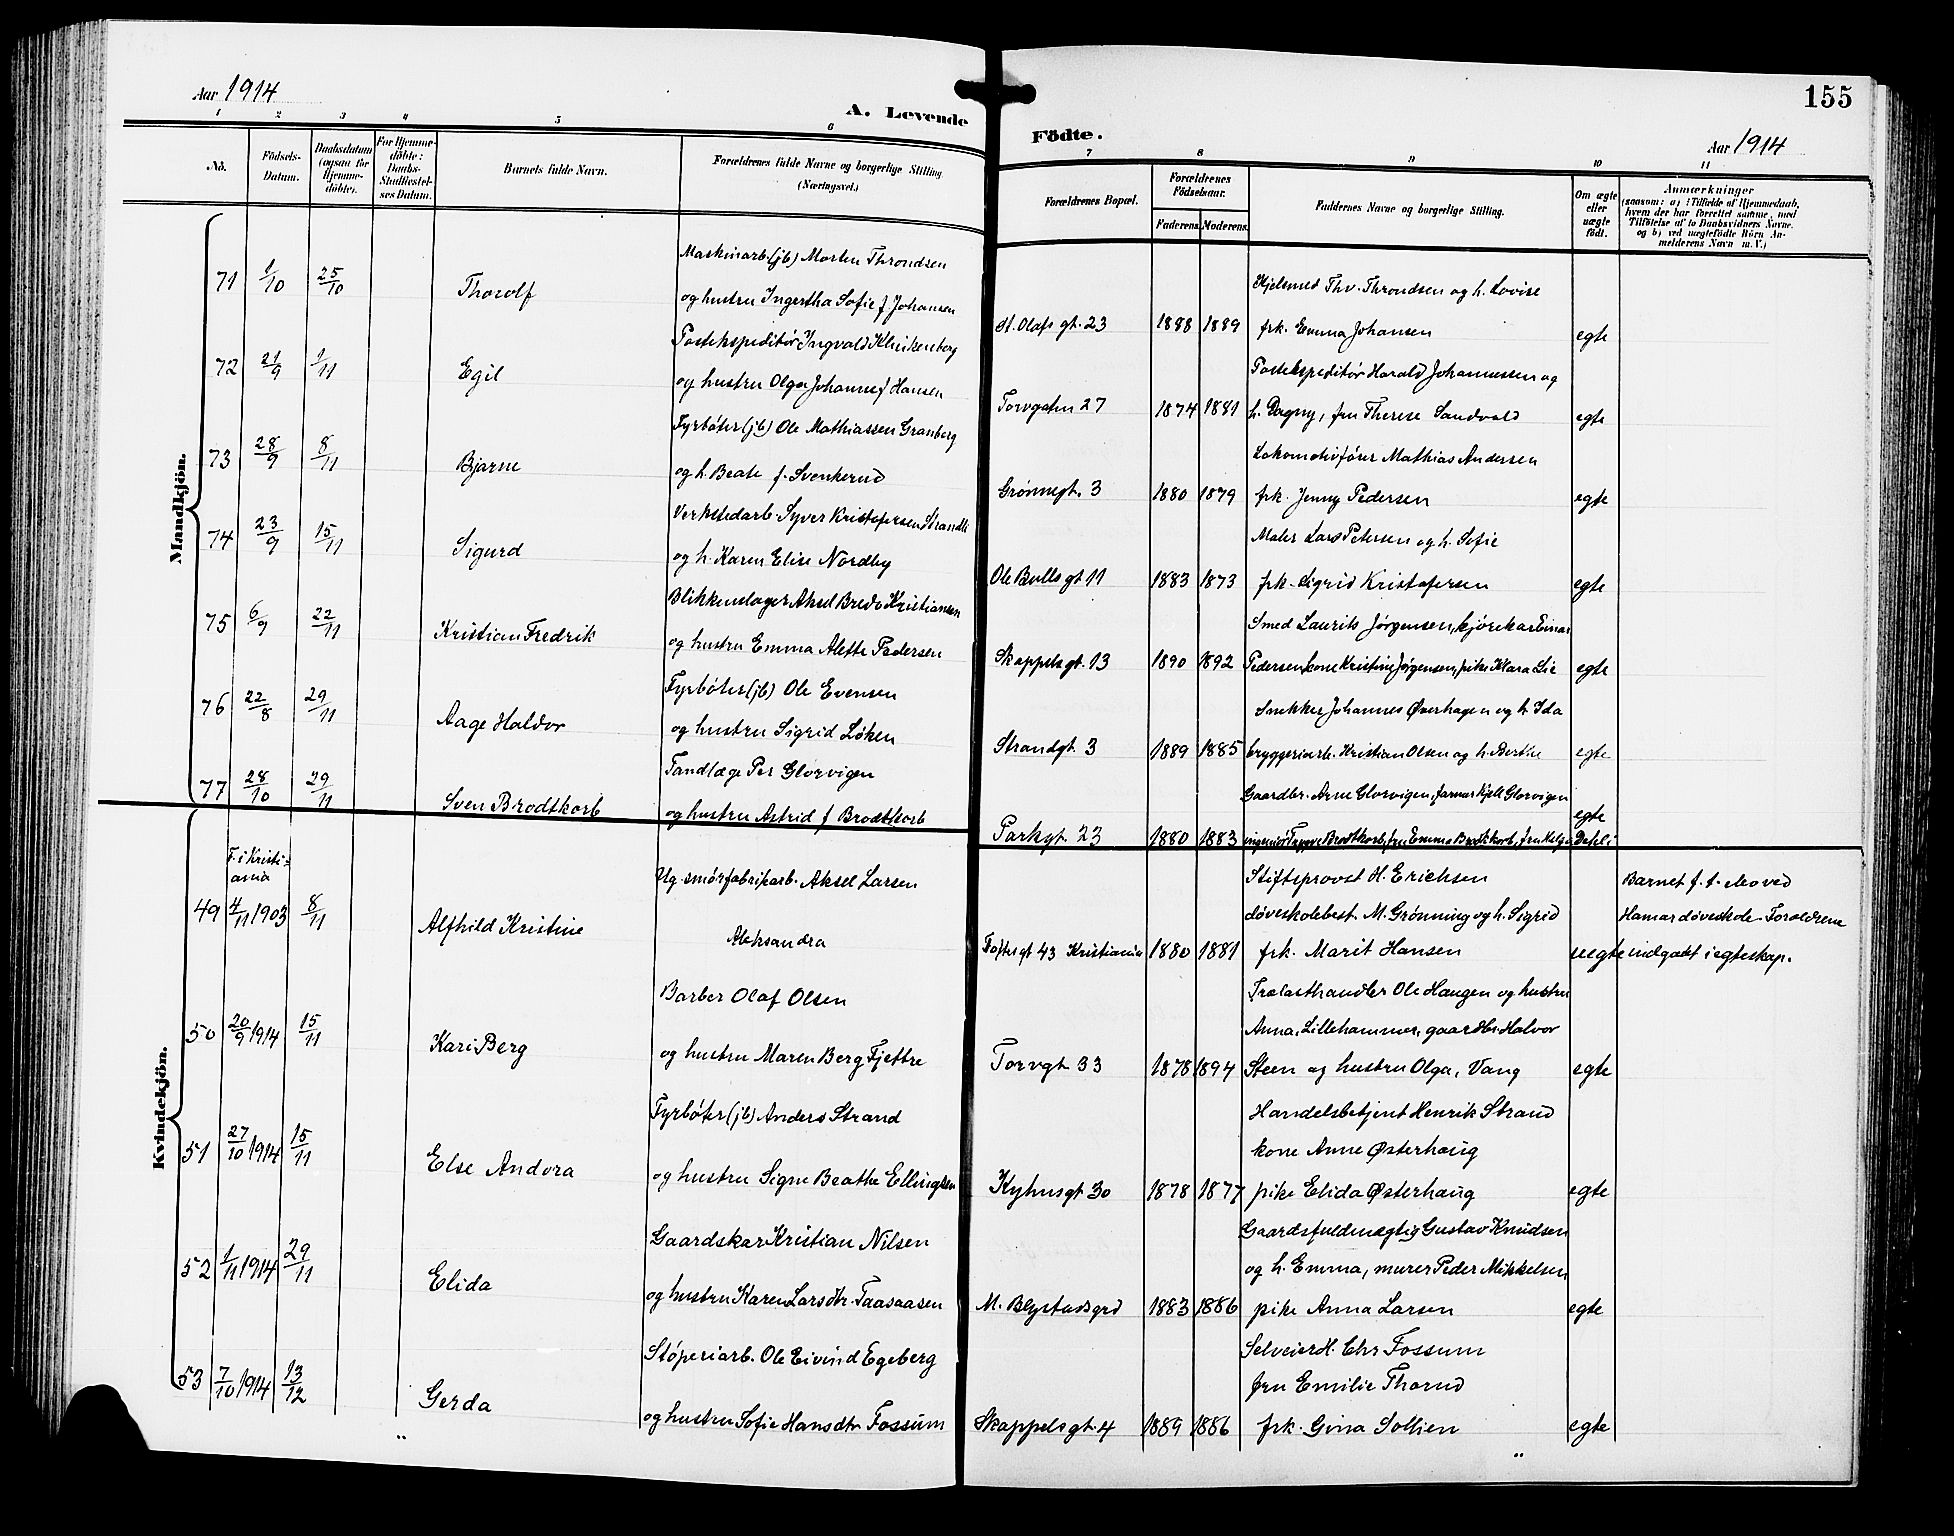 Aar 1914
A. Levende
Födte.
155
Aar 1914
1 2 3 4 5 6 7 8 9 10 11
No.
Födsels-
Datum.
Daabsdatum
(ogsaa for
Hjemme-
döbte).
For Hjemme-
döbte:
Daabs-
Stadfæstel-
ses Datum.
Barnets fulde Navn.
Forældrenes fulde Navne og borgerlige Stilling
(Næringsvei.)
Forældrenes Bopæl.
Forældrenes
Födselsaar.
Faderens. Moderens.
Faddernes Navne og borgerlige Stilling.
Om ægte
eller
uægte
födt.
Anmærkninger
(saasom: a) i Tilfælde af Hjemmedaab,
hvem der har forrettet samme, med
Tilföielse af to Daabsvidners Navne.
og b) ved uægtefödte Börn An-
melderens Navn m. V.)
Mandkjön.
71 1/10 25/10 Thorolf
Maskinarb. (jb) Morten Throndsen
og hustru Ingertha Sofie f Johansen
St. Olafs gt. 23 1888 1889
Hjelsmed Thv. Throndsen og h. Lovise
frk. Emma Johansen
egte
72 21/9 1/11 Egil
Postekspeditør Ingvald Klinkenberg
og hustru Olga Johanne f Hansen
Torvgaten 27 1874 1881
Postekspeditør Harald Johannessen og
h. Dagny, fru Therese Sandvold
egte
73 28/9 8/11 Bjarne
Fyrbøter (jb) Ole Mathiassen Granberg
og h. Beate f. Svenkerud
Grønnegt. 3 1880 1879
Lokomotivfører Mathias Andersen
frk. Jenny Pedersen
egte
74 23/9 15/11 Sigurd
Verkstedarb. Syver Kristofersen Strandli
og h. Karen Elise Nordby
Ole Bulls gt 11 1883 1873
Maler Lars Petersen og h. Sofie
frk. Sigrid Kristofersen
egte
75 6/9 22/11 Kristian Fredrik
Blikkenslager Aksel Bredo Kristiansen
og hustru Emma Alette Pedersen
Skappels gt. 13 1890 1892
Smed Laurits Jørgensen, kjørekar Einar
Pedersen kone Kristine Jørgensen, pike Klara Lie
egte
76 22/8 29/11 Aage Haldor
Fyrbøter (jb) Ole Evensen
og hustru Sigrid Løken
Strandgt. 3 1889 1885
Snekker Johannes Øverhagen og h. Ida
bryggeriarb. Kristian Olsen og h. Berthe
egte
77 28/10 29/11 Sven Brodtkorb
Tandlæge Per Glorvigen
og hustru Astrid f Brodtkorb
Parkgt. 23 1880 1883
Gaardbr. Arne Glorvigen, farmer Kjell Glorvigen
ingeniør Trygve Brodtkorb, fru Emma Brodtkorb, fru Helga Dahl
egte
Kvindekjön.
49 F. i Kristi-
ania
4/11 1903 8/11 Alfhild Kristine
Ug. smørfabrikarb. Aksel Larsen
Aleksandra
Toftes gt 43 Kristiania 1880 1881
Stiftsprovst H. Erichsen
døveskolebest. M. Grønning og h. Sigrid
frk. Marit Hansen
uegte
Barnet f. t. elev ved
Hamar døveskole. Forældrene
indgaat i egteskap.
50 20/9 1914 15/11 Kari Berg
Barber Olaf Olsen
og hustru Maren Berg Fjettre
Torvgt 33 1878 1894
Trælasthandler Ole Haugen og hustru
Anna, Lillehammer, gaardbr. Halvor
Steen og hustru Olga, Vang
egte
51 27/10 1914 15/11 Else Andora
Fyrbøter (jb) Anders Strand
og hustru Signe Beathe Ellingsen
Kyhnsgt 30 1878 1877
Handelsbetjent Henrik Strand
kone Anne Østerhaug
pike Elida Østerhaug
egte
52 1/11 1914 29/11 Elida
Gaardskar Kristian Nilsen
og hustru Karen Larsdtr. Taasaasen
M. Blystadsgrd 1883 1886
Gaardsfuldmægtig Gustav Knudsen
og h. Emma, murer Peder Mikkelsen
pike Anna Larsen
egte
53 7/10 1914 13/12 Gerda
Støperiarb. Ole Eivind Egeberg
og hustru Sofie Hansdtr Fossum
Skappels gt. 4 1889 1886
Selveier H. Chr Fossum
fru Emilie Thorud
frk. Gina Sollien
egte